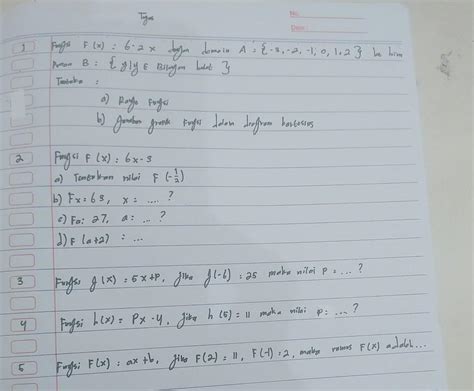 Tugas
No.
Date.
1 Fungsi F(x) : 6-2x dengan domain A : {-3, -2, -1, 0, 1, 2} ke
B : {y|y ∈ Bilangan bulat}
Tentukan :
a) Range Fungsi
b) gambar grafik Fungsi dalam diagram kartesius
2 Fungsi F(x) : 6x-3
a) Tentukan nilai F(-1/2)
b) Fx = 63, x = .... ?
c) Fa = 27, a = ... ?
d) F(a+2) = ...
3 Fungsi g(x) = 5x+P, jika g(-6) = 25 maka nilai P = ... ?
4 Fungsi h(x) = Px-4, jika h(5) = 11 maka nilai P = ... ?
5 Fungsi F(x) = ax+b, jika F(2) = 11, F(-1) = 2, maka rumus F(x) adalah...